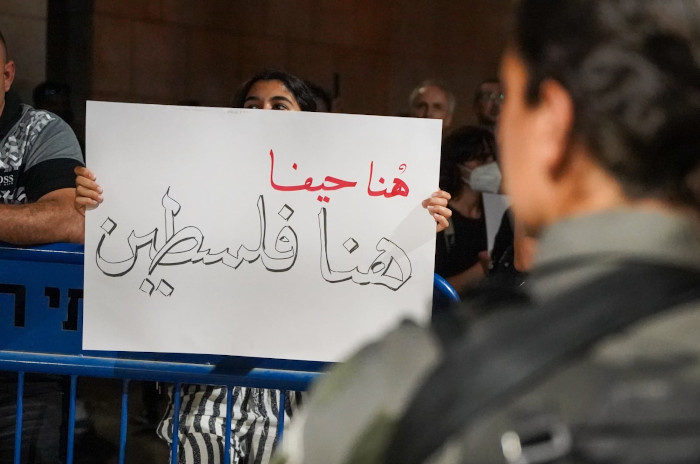 هُنا حيفا
هنا فلسطين
BOSS